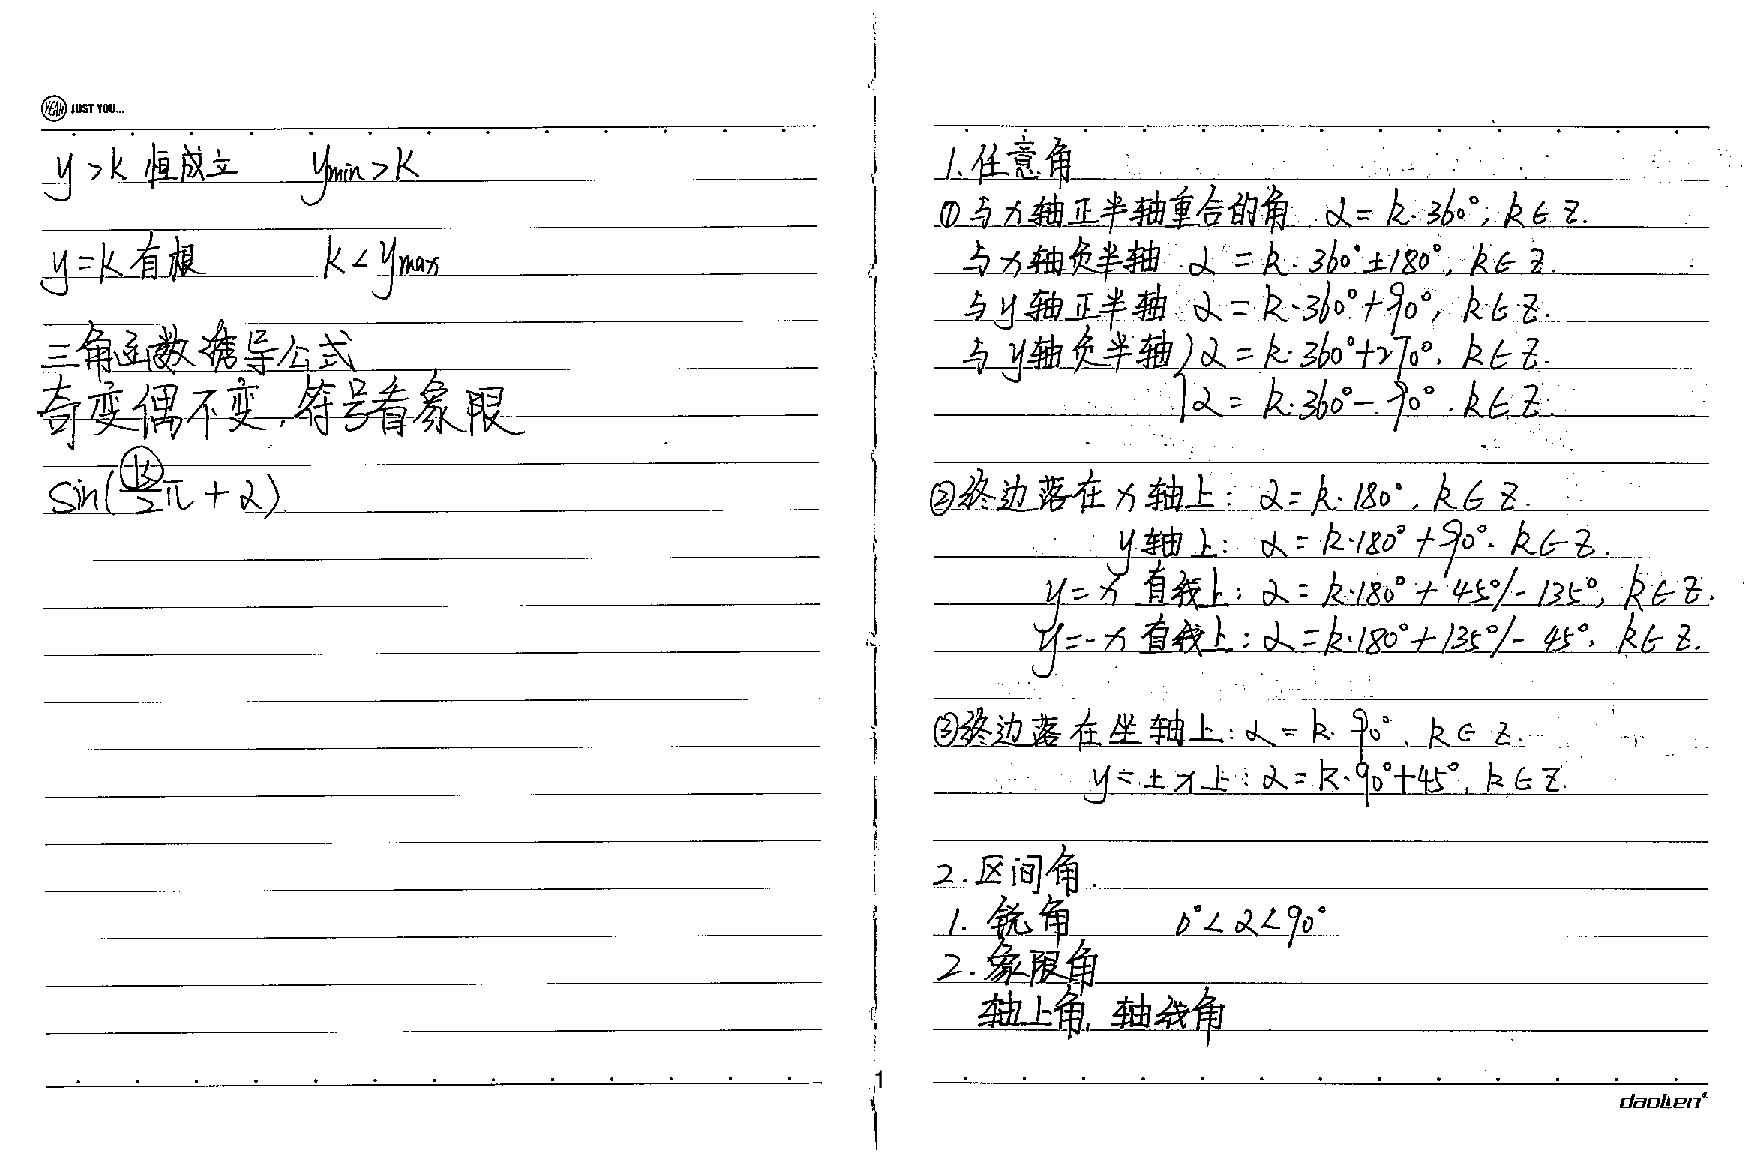 YEAH JUST YOU...
y>k 恒成立 ymin>k
y=k 有根 k<ymax
三角函数诱导公式
奇变偶不变,符号看象限
sin(k/2π+α)
1.任意角
①与x轴正半轴重合的角 α=k·360°,k∈Z.
与x轴负半轴 α=k·360°±180°,k∈Z.
与y轴正半轴 α=k·360°+90°,k∈Z.
与y轴负半轴 α=k·360°+270°,k∈Z.
α=k·360°-90°.k∈Z.
②终边落在x轴上: α=k·180°,k∈Z.
y轴上: α=k·180°+90°.k∈Z.
y=x 直线上: α=k·180°+45°/-135°,k∈Z.
y=-x 直线上: α=k·180°+135°/-45°,k∈Z.
③终边落在坐轴上: α=k·90°,k∈Z.
y=±x上: α=k·90°+45°,k∈Z.
2.区间角.
1.锐角 0°<α<90°
2.象限角
轴上角,轴线角
1
daolien